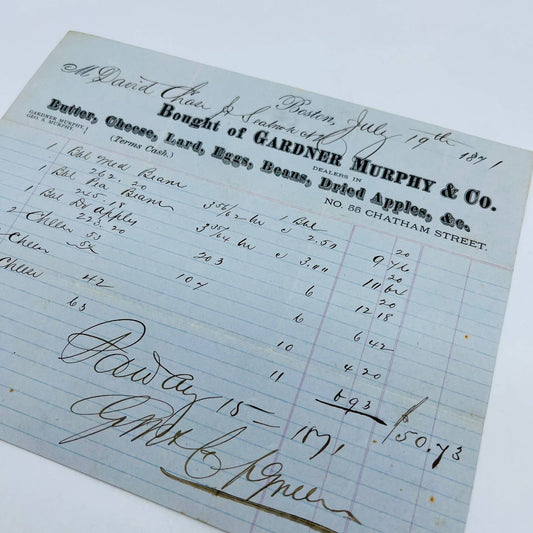 Boston, July 19th 1871
M David Chase Jr Seabrook NH
Bought of GARDNER MURPHY & CO.
GARDNER MURPHY,
GEO. S. MURPHY.
DEALERS IN
Butter, Cheese, Lard, Eggs, Beans, Dried Apples, &c.
(Terms Cash.)
NO. 55 CHATHAM STREET.
1 Bbl Med Beans 1 Bbl 20
262 20 3 56/62 bu 2.50 9 76
1 Bbl Pea Beans 20
255.18 3 3.00
1 Bbl Dr apples 20
223.20 203 6 12 18
2 Cheese 53 54 107 6 6 42
Cheese 42 10 4 20
Cheese 63 11 6 93
$50.73
Paid Aug 15 - 1871
GM & Co